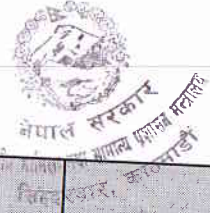 नेपाल सरकार
सामान्य प्रशासन मन्त्रालय
सिंहदरबार, काठमाडौं